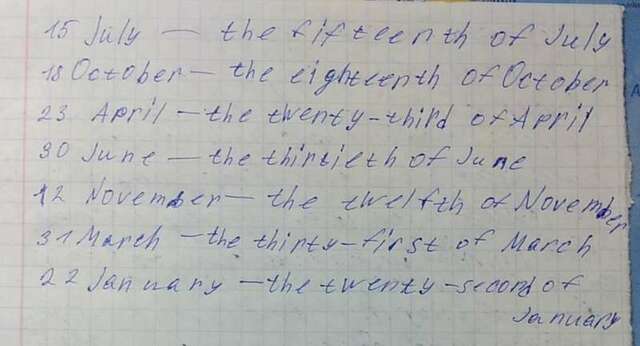 15 July — the fifteenth of July
18 October — the eighteenth of October
23 April — the twenty-third of April
30 June — the thirtieth of June
12 November — the twelfth of November
31 March — the thirty-first of March
22 January — the twenty-second of
January